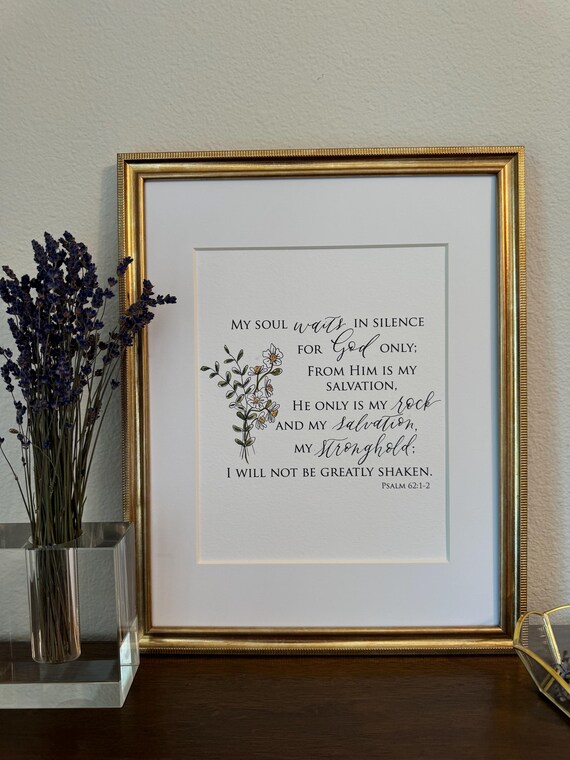 My soul waits in silence
for God only;
From Him is my
salvation,
He only is my rock
and my salvation,
my stronghold:
I will not be greatly shaken.
Psalm 62:1-2